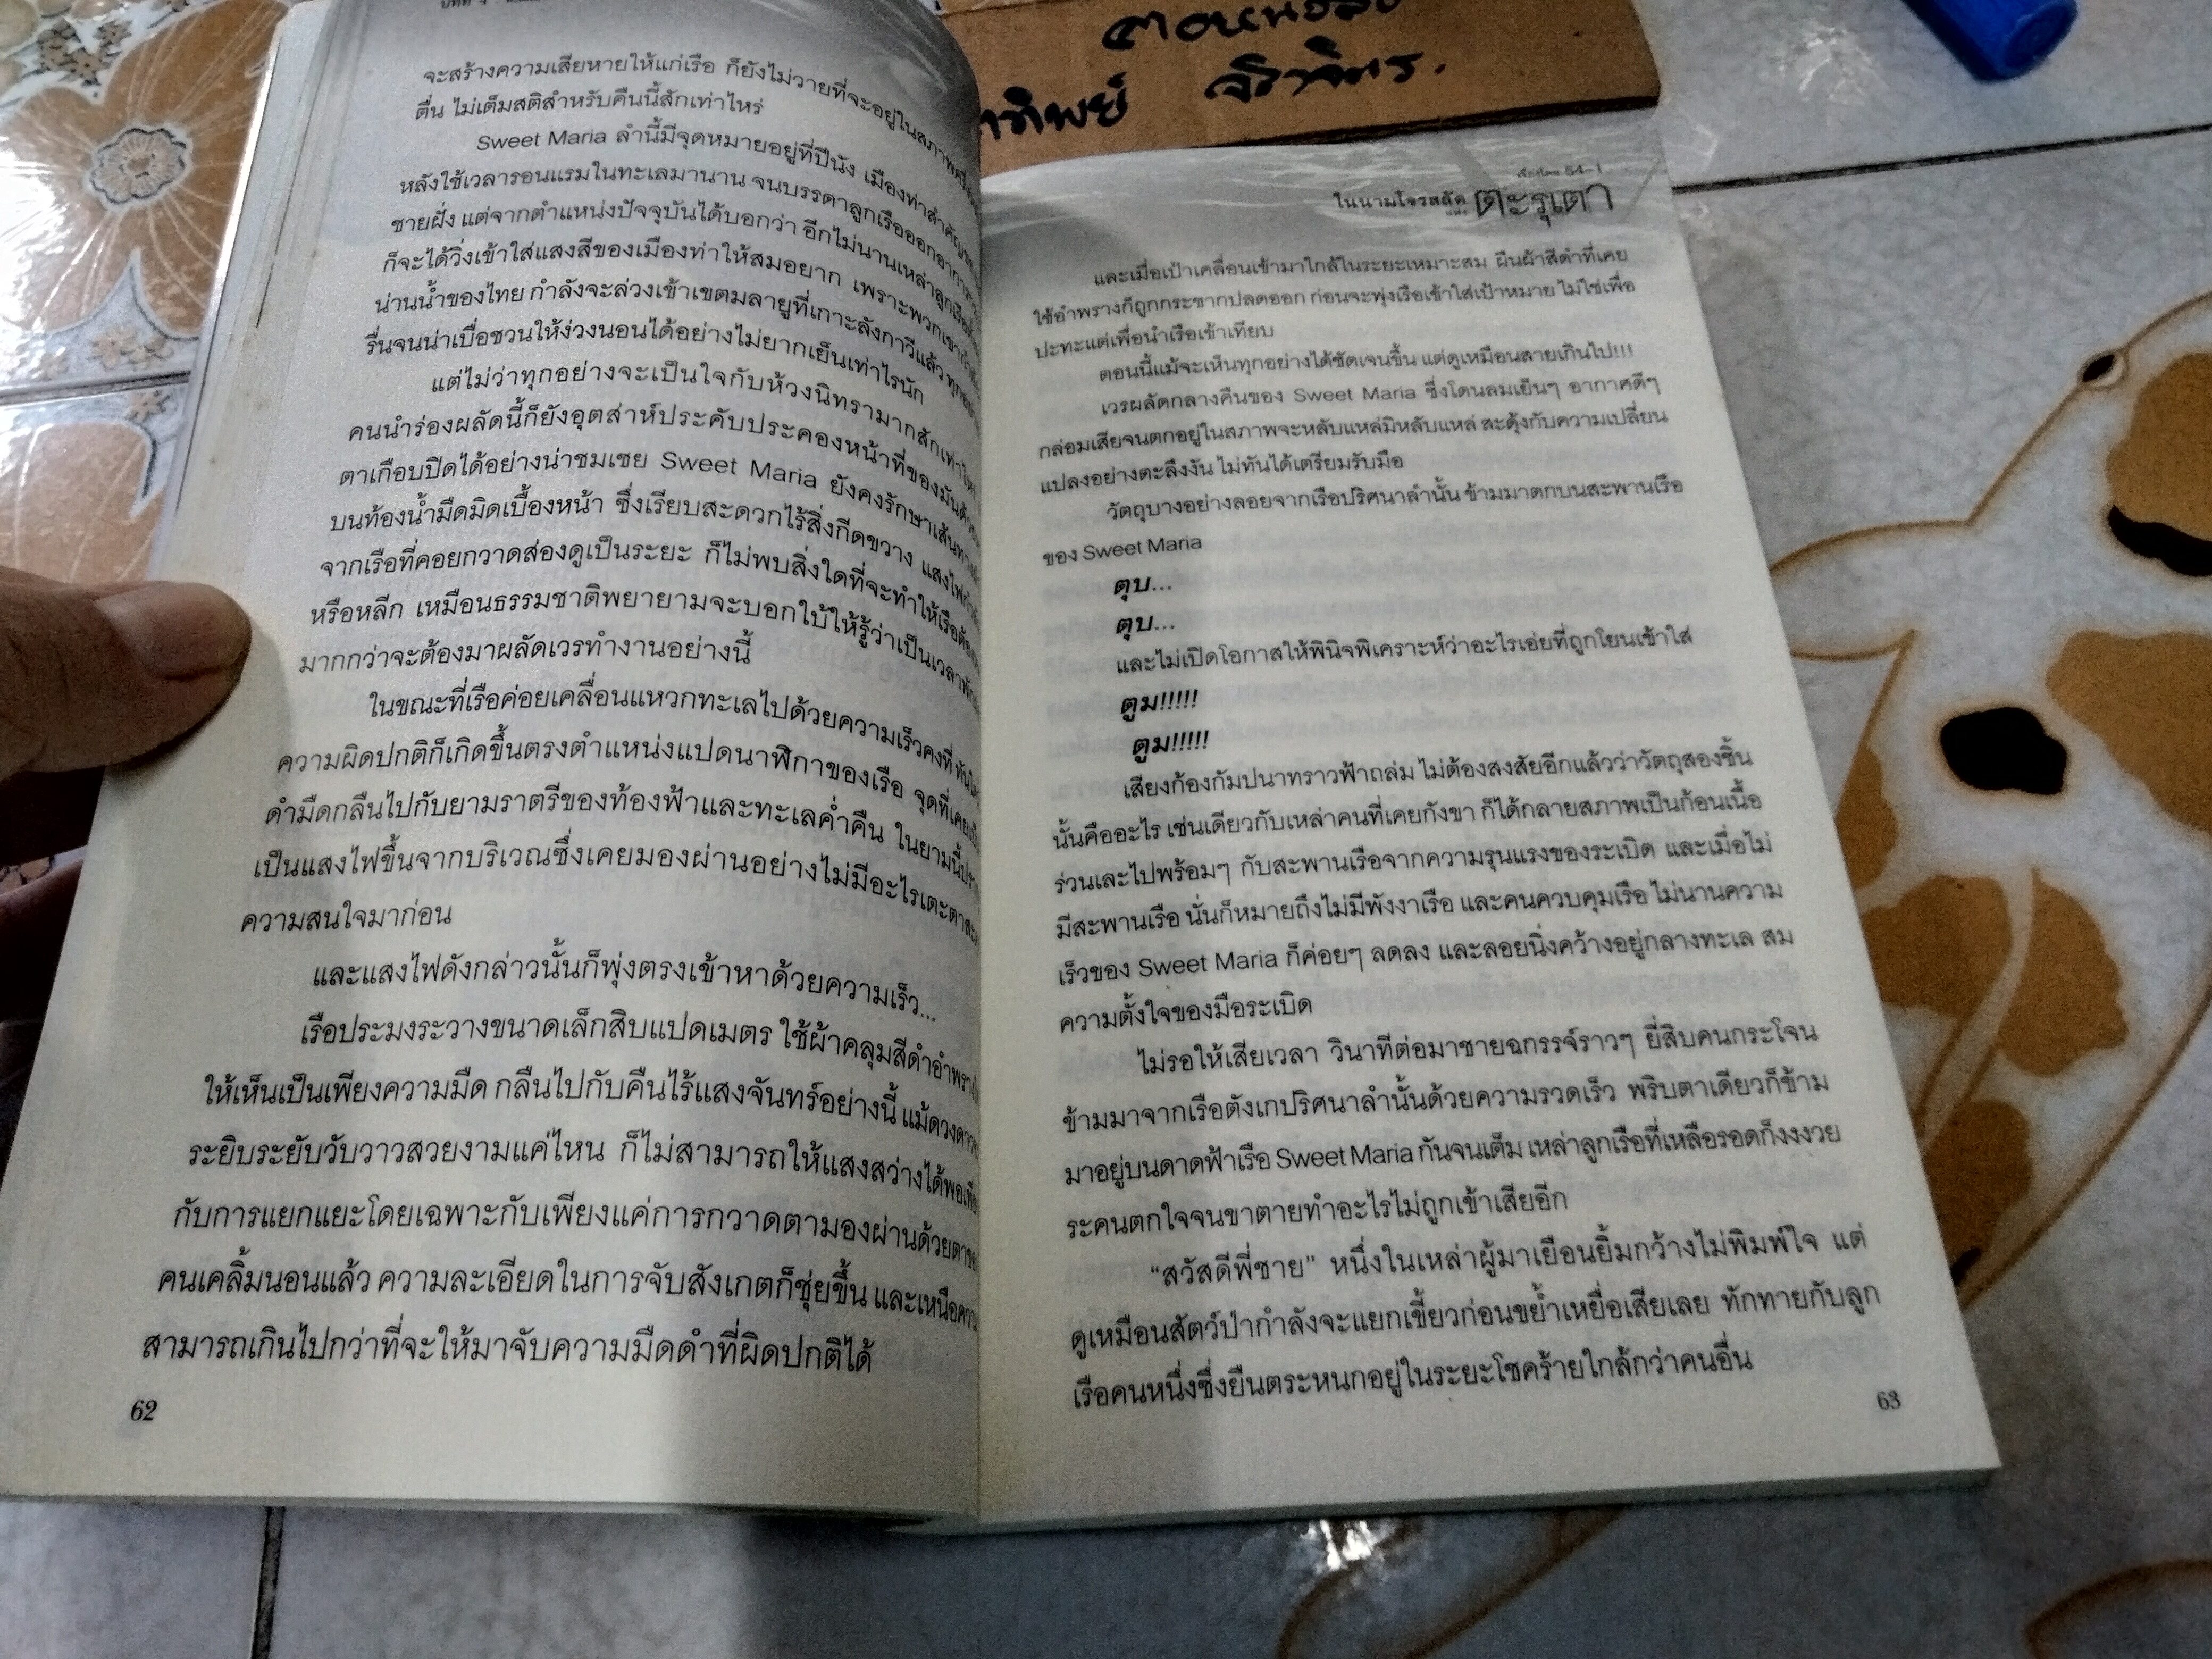 จะสร้างความเสียหายให้แก่เรือ ก็ยังไม่วายที่จะอยู่ในสภาพครึ่งหลับครึ่ง
ตื่น ไม่เต็มสติสำหรับคืนนี้สักเท่าไหร่
Sweet Maria ลำนี้มีจุดหมายอยู่ที่ปีนัง เมืองท่าสำคัญ
หลังใช้เวลารอนแรมในทะเลมานาน จนบรรดาลูกเรือออกอาการ
ชายฝั่ง แต่จากตำแหน่งปัจจุบันได้บอกว่า อีกไม่นานเหล่าลูกเรือ
ก็จะได้วิ่งเข้าใส่แสงสีของเมืองท่าให้สมอยาก เพราะพวกเขา
น่านน้ำของไทย กำลังจะล่วงเข้าเขตมลายูที่เกาะลังกาวีแล้ว
รื่นจนน่าเบื่อชวนให้ง่วงนอนได้อย่างไม่ยากเย็นเท่าไรนัก
แต่ไม่ว่าทุกอย่างจะเป็นใจกับห้วงนิทรามากสักเท่าไหร่
คนนำร่องผลัดนี้ก็ยังอุตส่าห์ประคับประคองหน้าที่ของมันด้วย
ตาเกือบปิดได้อย่างน่าชมเชย Sweet Maria ยังคงรักษาเส้นทาง
บนท้องน้ำมืดมิดเบื้องหน้า ซึ่งเรียบสะดวกไร้สิ่งกีดขวาง แสงไฟ
จากเรือที่คอยกวาดส่องดูเป็นระยะ ก็ไม่พบสิ่งใดที่จะทำให้เรือต้อง
หรือหลีก เหมือนธรรมชาติพยายามจะบอกใบ้ให้รู้ว่าเป็นเวลา
มากกว่าจะต้องมาผลัดเวรทำงานอย่างนี้
ในขณะที่เรือค่อยเคลื่อนแหวกทะเลไปด้วยความเร็วคงที่
ความผิดปกติก็เกิดขึ้นตรงตำแหน่งแปดนาฬิกาของเรือ จุดที่เคย
ดำมืดกลืนไปกับยามราตรีของท้องฟ้าและทะเลค่ำคืน ในยามนี้
เป็นแสงไฟขึ้นจากบริเวณซึ่งเคยมองผ่านอย่างไม่มีอะไรเตะตา
ความสนใจมาก่อน
และแสงไฟดังกล่าวนั้นก็พุ่งตรงเข้าหาด้วยความเร็ว...
เรือประมงระวางขนาดเล็กสิบแปดเมตร ใช้ผ้าคลุมสีดำอำพราง
ให้เห็นเป็นเพียงความมืด กลืนไปกับคืนไร้แสงจันทร์อย่างนี้ แม้ดวงดาว
ระยิบระยับวับวาวสวยงามแค่ไหน ก็ไม่สามารถให้แสงสว่างได้พอ
กับการแยกแยะโดยเฉพาะกับเพียงแค่การกวาดตามองผ่านด้วยตา
คนเคลิ้มนอนแล้ว ความละเอียดในการจับสังเกตก็ซุ่ยขึ้น และเหนือความ
สามารถเกินไปกว่าที่จะให้มาจับความมืดดำที่ผิดปกติได้
62
เรือโดย 54-1
ในนามโจรสลัดแห่ง ตะรุเตา
และเมื่อเป้าเคลื่อนเข้ามาใกล้ในระยะเหมาะสม ผืนผ้าสีดำที่เคย
ใช้อำพรางก็ถูกกระชากปลดออก ก่อนจะพุ่งเรือเข้าใส่เป้าหมาย ไม่ใช่เพื่อ
ปะทะแต่เพื่อนำเรือเข้าเทียบ
ตอนนี้แม้จะเห็นทุกอย่างได้ชัดเจนขึ้น แต่ดูเหมือนสายเกินไป!!!
เวรผลัดกลางคืนของ Sweet Maria ซึ่งโดนลมเย็นๆ อากาศดีๆ
กล่อมเสียจนตกอยู่ในสภาพจะหลับแหล่มิหลับแหล่ สะดุ้งกับความเปลี่ยน
แปลงอย่างตะลึงงัน ไม่ทันได้เตรียมรับมือ
วัตถุบางอย่างลอยจากเรือปริศนาลำนั้น ข้ามมาตกบนสะพานเรือ
ของ Sweet Maria
ตุบ...
ตุบ...
และไม่เปิดโอกาสให้พินิจพิเคราะห์ว่าอะไรเอ่ยที่ถูกโยนเข้าใส่
ตูม!!!!!
ตูม!!!!!
เสียงก้องกัมปนาทราวฟ้าถล่ม ไม่ต้องสงสัยอีกแล้วว่าวัตถุสองชิ้น
นั้นคืออะไร เช่นเดียวกับเหล่าคนที่เคยกังขา ก็ได้กลายสภาพเป็นก้อนเนื้อ
ร่วนเละไปพร้อมๆ กับสะพานเรือจากความรุนแรงของระเบิด และเมื่อไม่
มีสะพานเรือ นั่นก็หมายถึงไม่มีพังงาเรือ และคนควบคุมเรือ ไม่นานความ
เร็วของ Sweet Maria ก็ค่อยๆ ลดลง และลอยนิ่งคว้างอยู่กลางทะเล สม
ความตั้งใจของมือระเบิด
ไม่รอให้เสียเวลา วินาทีต่อมาชายฉกรรจ์ราวๆ ยี่สิบคนกระโจน
ข้ามมาจากเรือตังเกปริศนาลำนั้นด้วยความรวดเร็ว พริบตาเดียวก็ข้าม
มาอยู่บนดาดฟ้าเรือ Sweet Maria กันจนเต็ม เหล่าลูกเรือที่เหลือรอดก็งงงวย
ระคนตกใจจนขาตายทำอะไรไม่ถูกเข้าเสียอีก
“สวัสดีพี่ชาย” หนึ่งในเหล่าผู้มาเยือนยิ้มกว้างไม่พิมพ์ใจ แต่
ดูเหมือนสัตว์ป่ากำลังจะแยกเขี้ยวก่อนขย้ำเหยื่อเสียเลย ทักทายกับลูก
เรือคนหนึ่งซึ่งยืนตระหนกอยู่ในระยะโชคร้ายใกล้กว่าคนอื่น
63